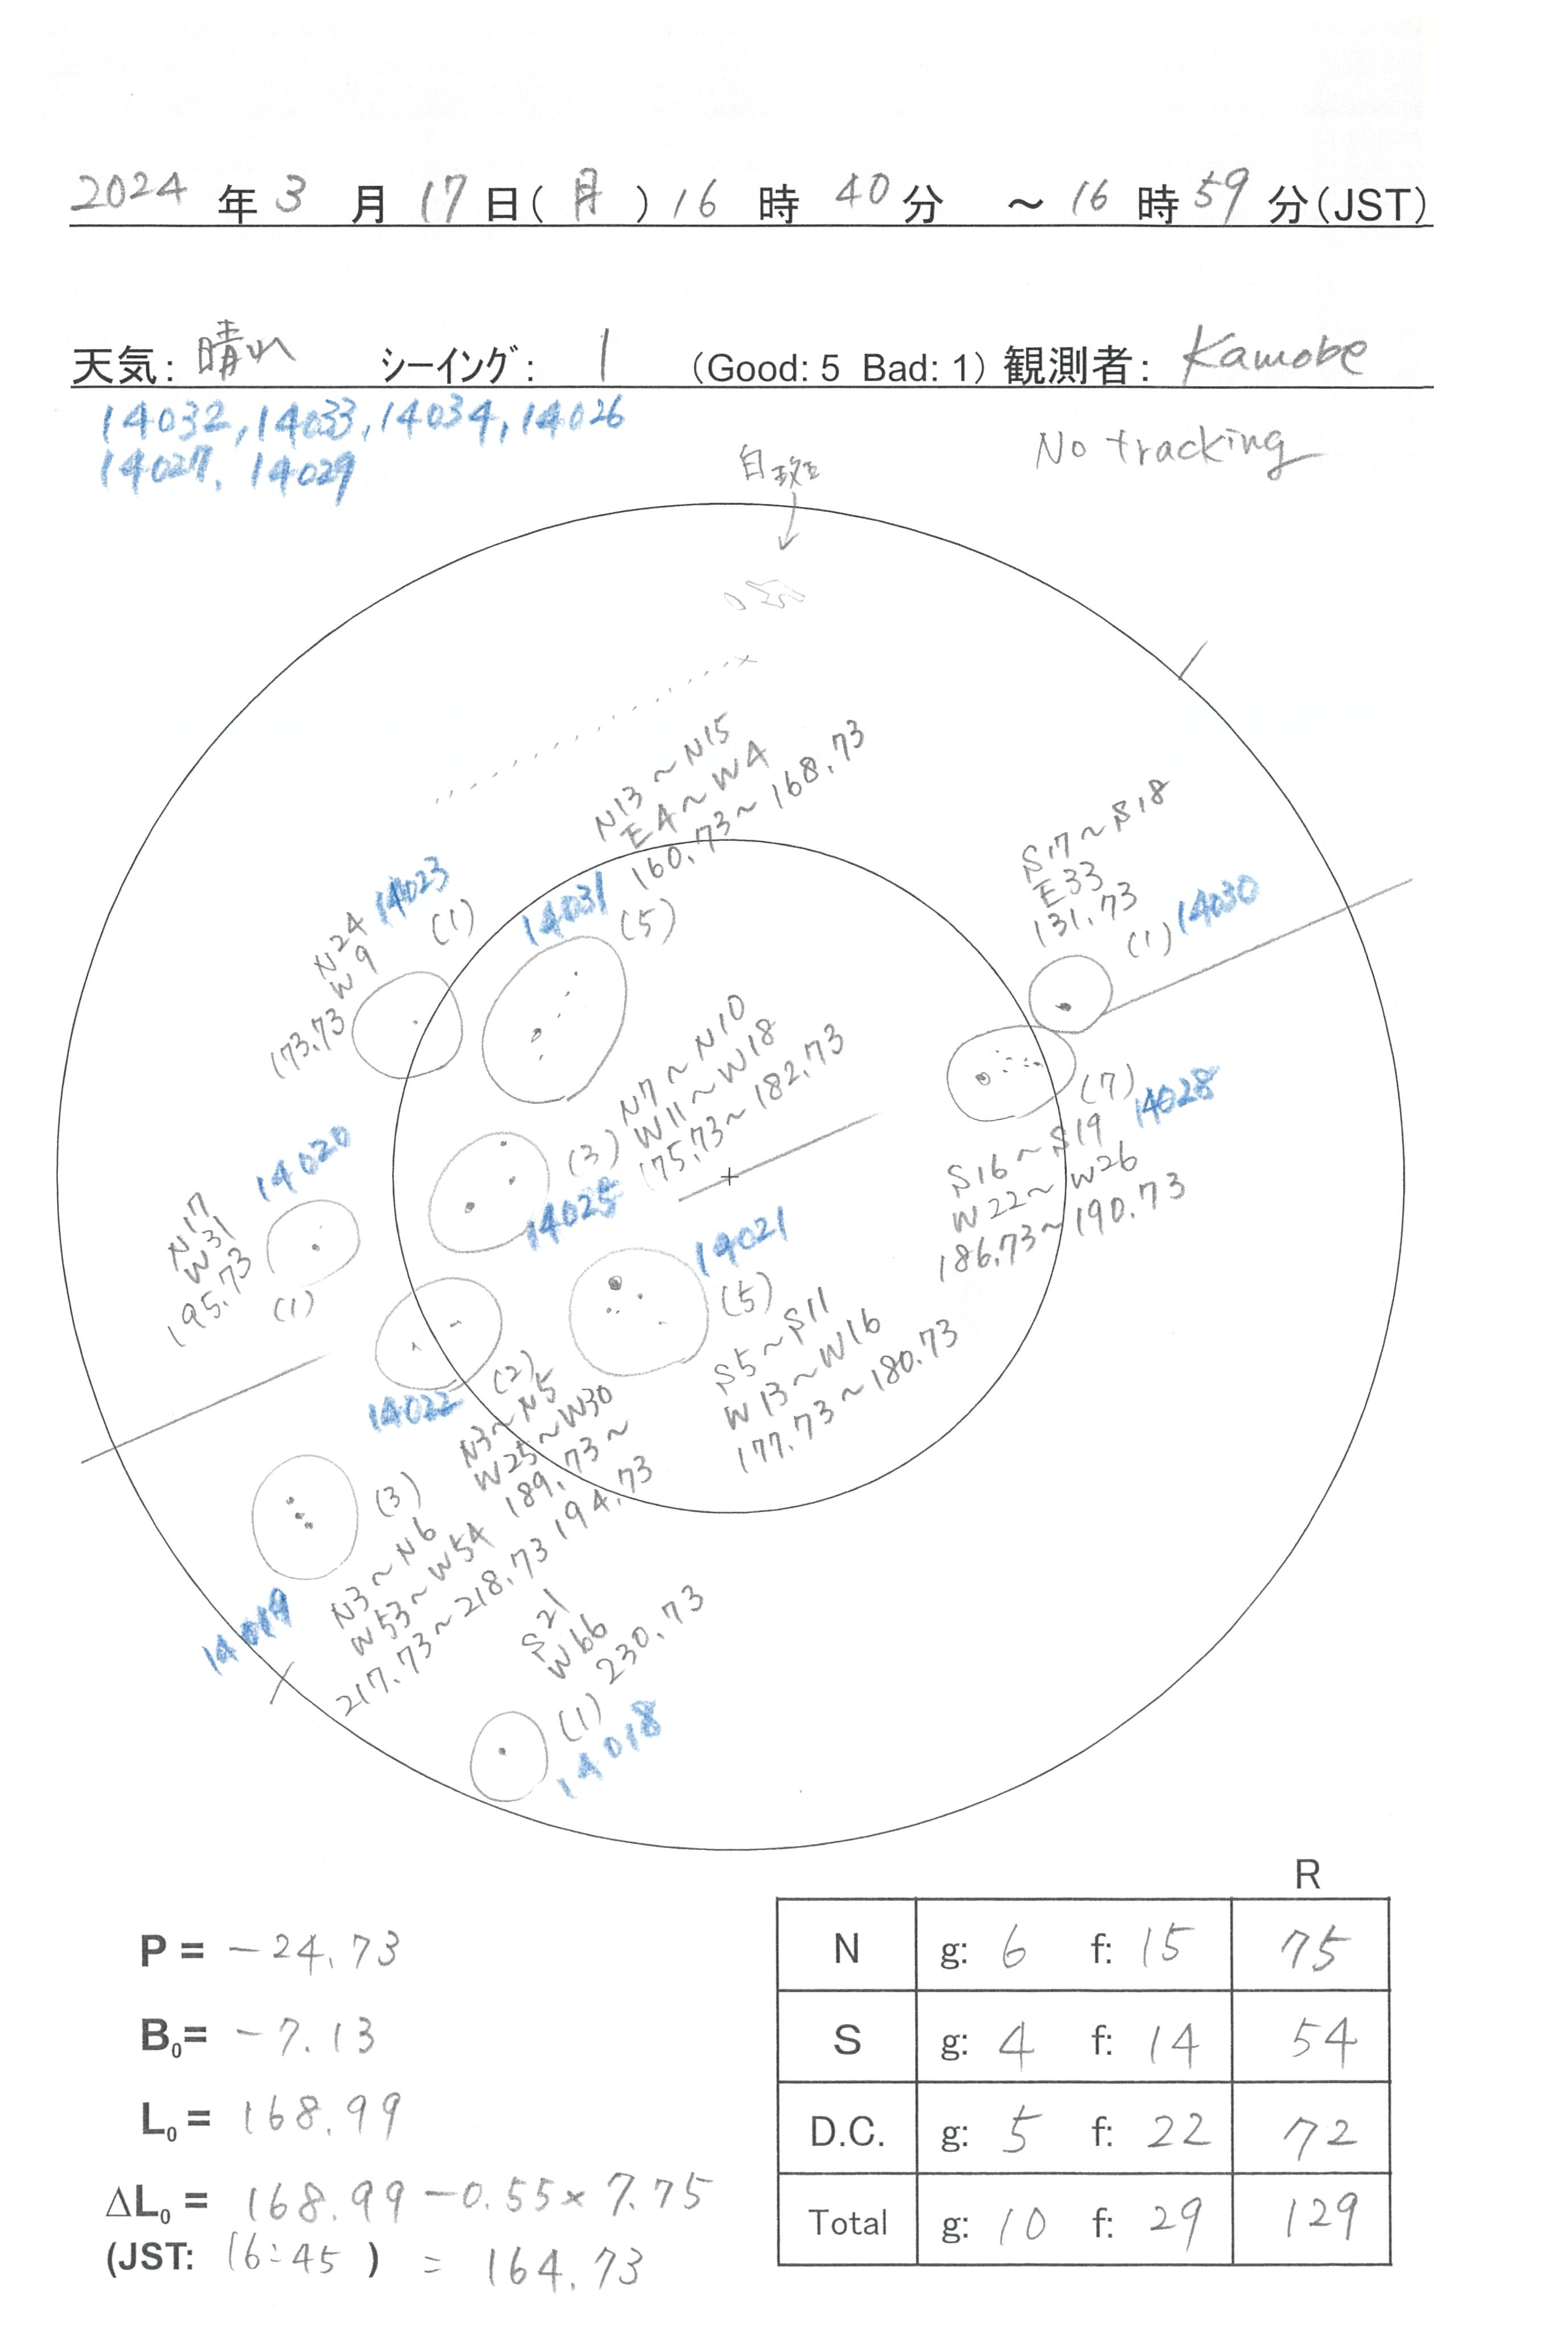 2024 年 3 月 17 日( 月 ) 16 時 40 分 ～ 16 時 59 分(JST)
天気: 晴れ ｼｰｲﾝｸﾞ: 1 (Good: 5 Bad: 1) 観測者: Kamobe
14032, 14033, 14034, 14026
14027, 14029
No tracking
N13～N15
E4～W4
160.73～168.73
(5)
14031
14023
(1)
N24
W9
173.73
S17～S18
E33
131.73
(1)
14030
N7～N10
W11～W18
175.73～182.73
(3)
14025
(7)
14028
S16～S19
W22～W26
186.73～190.73
14020
N17
W31
195.73
(1)
14021
(5)
S5～S11
W13～W16
177.73～180.73
14022
(2)
N3～N5
W25～W30
189.73～
194.73
(3)
N3～N6
W53～W54
217.73～218.73
14019
S21
W66
230.73
(1)
14018
P = -24.73
B0= -7.13
L0 = 168.99
ΔL0 = 168.99-0.55×7.75
(JST: 16:45 ) = 164.73
R
N g: 6 f: 15 75
S g: 4 f: 14 54
D.C. g: 5 f: 22 72
Total g: 10 f: 29 129